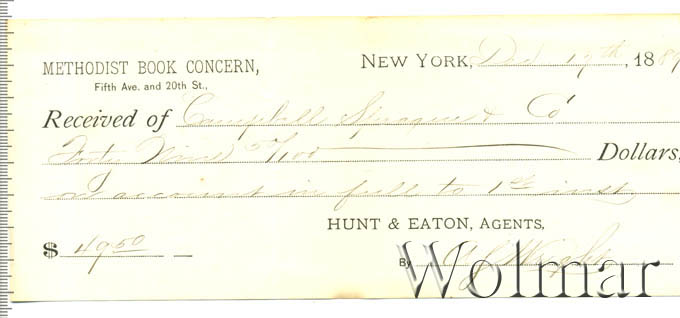 METHODIST BOOK CONCERN,
Fifth Ave. and 20th St.,
NEW YORK, Dec 17th, 1889
Received of Campbell Sprague & Co
Forty Nine 50/100 Dollars,
account in full to 1st inst
HUNT & EATON, AGENTS,
$ 49 50
By
Wolmar